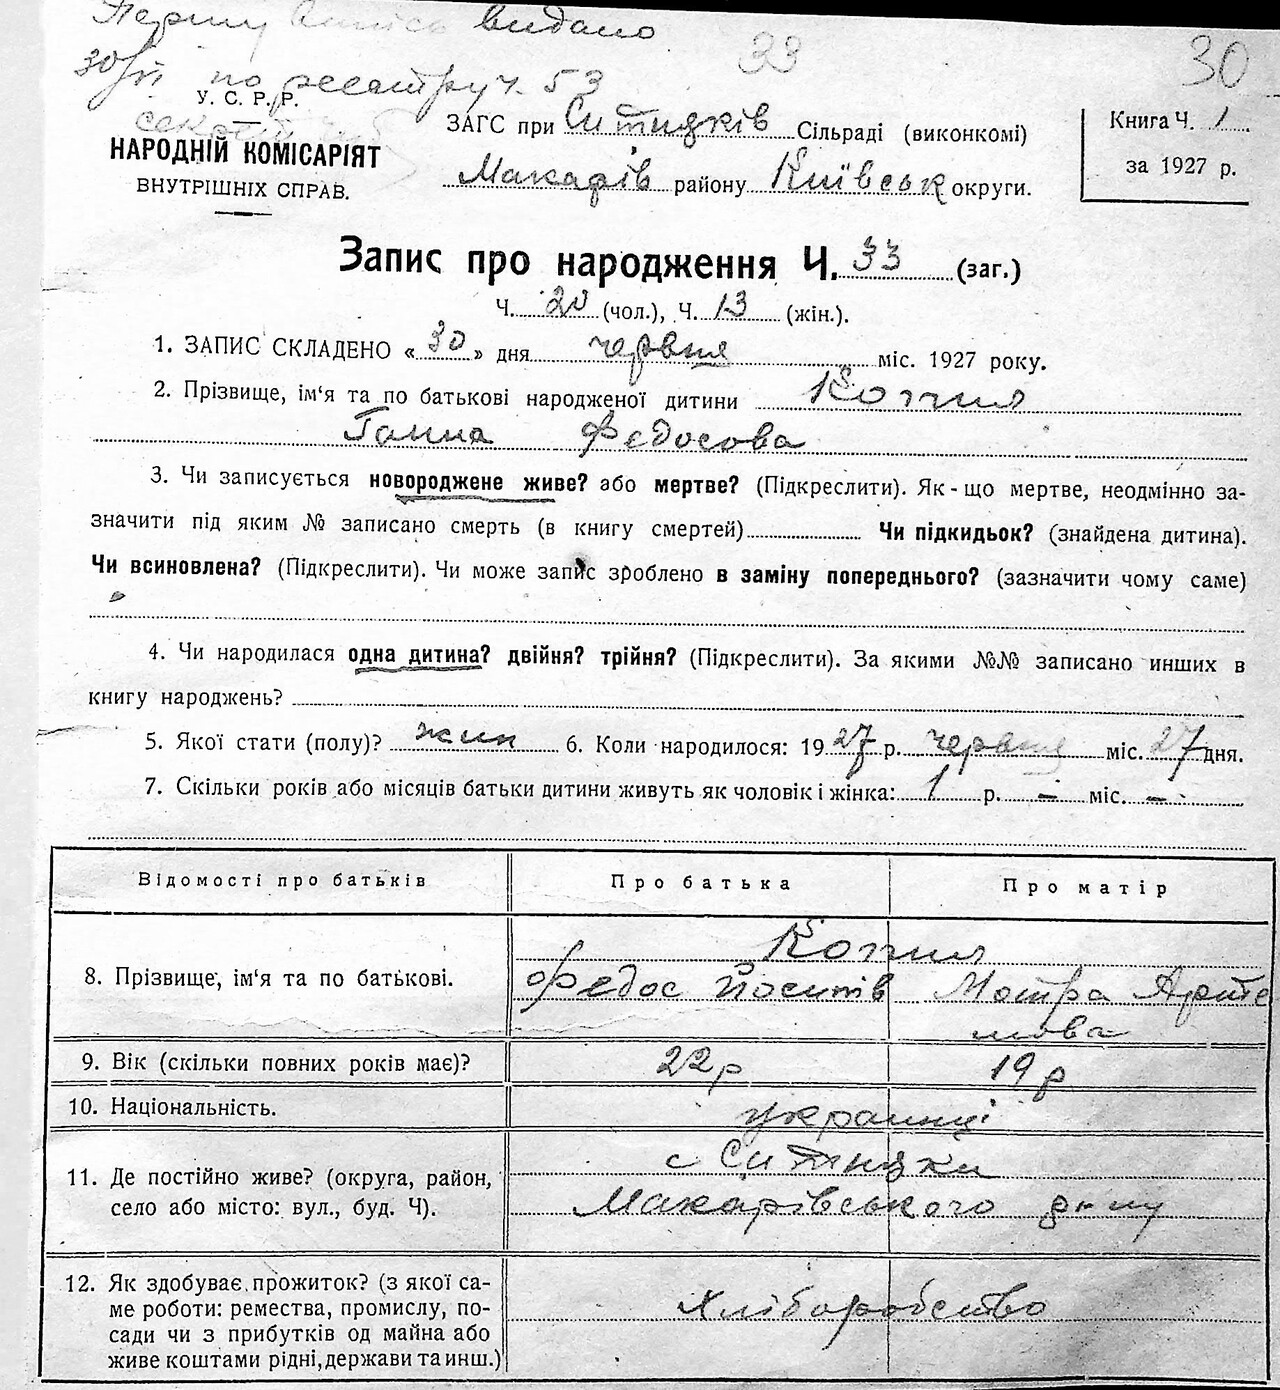 Першу запись видано
30/VI по реестру ч. 53
33
30
У. С. Р. Р.
НАРОДНІЙ КОМІСАРІЯТ
ВНУТРІШНІХ СПРАВ.
ЗАГС при Ситняків Сільраді (виконкомі)
Макарів району Київськ округи.
Книга Ч. 1
за 1927 р.
Запис про народження Ч. 33 (заг.)
Ч. 20 (чол.), Ч. 13 (жін.).
1. ЗАПИС СКЛАДЕНО «30» дня червня міс. 1927 року.
2. Прізвище, ім‘я та по батькові народженої дитини Коптил
Ганна Федосова
3. Чи записується новороджене живе? або мертве? (Підкреслити). Як-що мертве, неодмінно за-
значити під яким № записано смерть (в книгу смертей) Чи підкидьок? (знайдена дитина).
Чи всиновлена? (Підкреслити). Чи може запис зроблено в заміну попереднього? (зазначити чому саме)
4. Чи народилася одна дитина? двійня? трійня? (Підкреслити). За якими №№ записано инших в
книгу народжень?
5. Якої стати (полу)? жин 6. Коли народилося: 1927 р. червня міс. 27 дня.
7. Скільки років або місяців батьки дитини живуть як чоловік і жінка: 1 р. — міс. —
Відомості про батьків Про батька Про матір
8. Прізвище, ім‘я та по батькові. Коптил
Федос Йоситів Мотра Арте
мова
9. Вік (скільки повних років має)? 22р 19р
10. Національність. украинці
11. Де постійно живе? (округа, район,
село або місто: вул., буд. Ч).
с Ситняки
Макарівського
12. Як здобуває прожиток? (з якої са-
ме роботи: ремества, промислу, по-
сади чи з прибутків од майна або
живе коштами рідні, держави та инш.)
Хліборобство